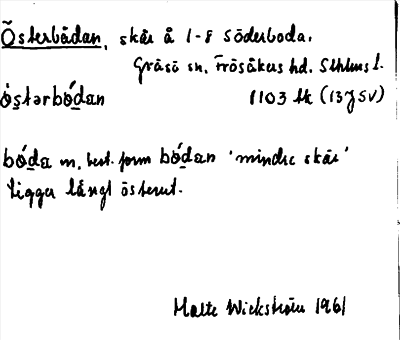 Österbådan, skär å 1-8 Söderboda,
Gräsö sn, Frösåkers hd. Sthlms l.
ö̀stərbó̱dan 1103 tk (13J SV)
bó̱da m, best. form bó̱dan 'mindre skär'
Ligger långt österut.
Malte Wickström 1961